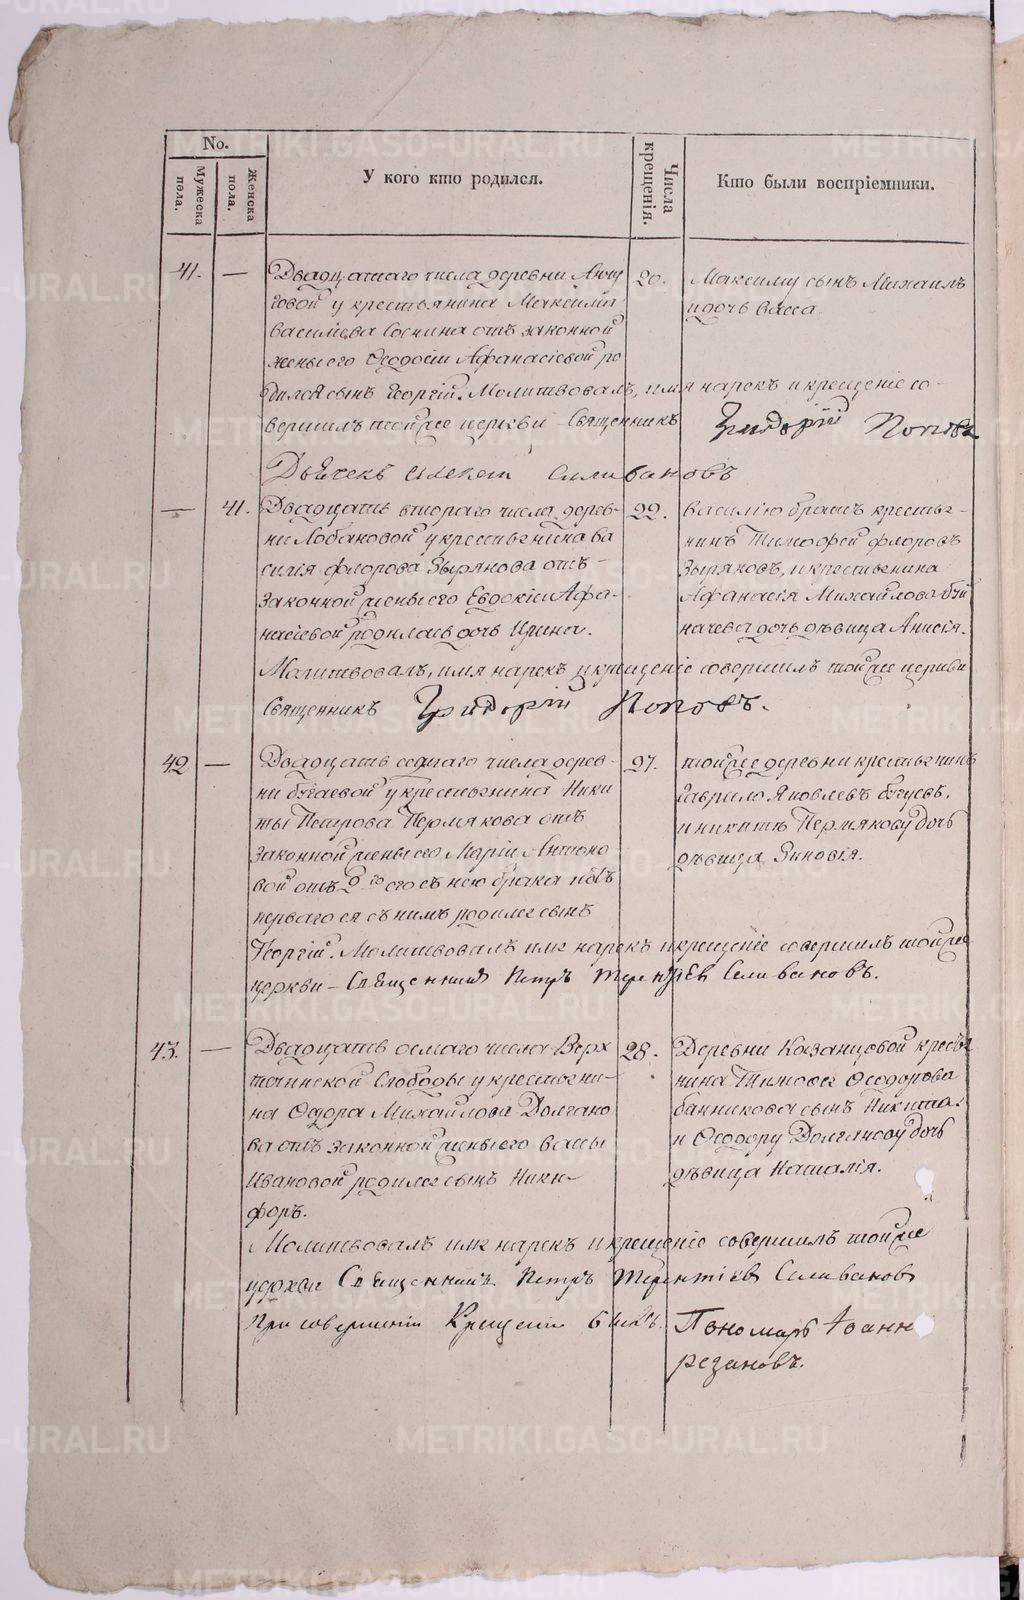 No.
Мужеска пола.
Женска пола.
У кого кто родился.
Числа крещенія.
Кто были воспріемники.
41. —
Двадцатаго числа деревни
говой у крестьянина Максима
Васильева Соснина отъ законной
жены его Ѳеодосіи Афанасіевой ро
дился сынъ Георгій. Молитвовалъ, имя нарекъ и крещеніе со-
вершилъ тойже церкви Священникъ Григорій Поповъ
Дьячекъ Селивановъ
20.
Максиму сынъ Михаилъ
и дочь Васса.
— 41.
Двадцать втораго числа дерев-
ни Лобановой у крестьянина Ва
силія Флорова Зырянова отъ
законной жены его Евдокіи Афа-
насіевой родилась дочь Ирина.
Молитвовалъ, имя нарекъ и крещеніе совершилъ тойже церкви
Священникъ Григорій Поповъ.
22.
Василію братъ крестья-
нинъ Тимофей Флоровъ
Зыряновъ, и крестьянина
Афанасія Михайлова
дочь дѣвица Анисія.
42 —
Двадцать седмаго числа дерев-
ни Бугаевой у крестьянина Ники
ты Петрова Пермякова отъ
законной жены его Маріи Антоно
вой отъ 2го его съ нею брака
перваго ея съ нимъ родился сынъ
Георгій. Молитвовалъ имя нарекъ и крещеніе совершилъ тойже
церкви – Священникъ Петръ Терентіев Селивановъ.
27.
тойже деревни крестьянинъ
Гаврило Яковлевъ
и Никитѣ Пермякову дочь
дѣвица Зиновія.
43. —
Двадцать осмаго числа Верх
теченской Слободы у крестьяни-
на Ѳедора Михайлова Долгано
ва отъ законной жены его Вассы
Ивановой родился сынъ Ники-
форъ.
Молитвовалъ имя нарекъ и крещеніе совершилъ тойже
церкви Священникъ Петръ Терентіев Селиванов
При совершеніи Крещеніи былъ. Пономарь Іоанн
Резановъ.
28.
Деревни Казанцовой крестья
нина Тимофея Ѳеодорова
Банникова сынъ Никита.
и Ѳеодору Долганову дочь
дѣвица Наталія.
METRIKI.GASO-URAL.RU